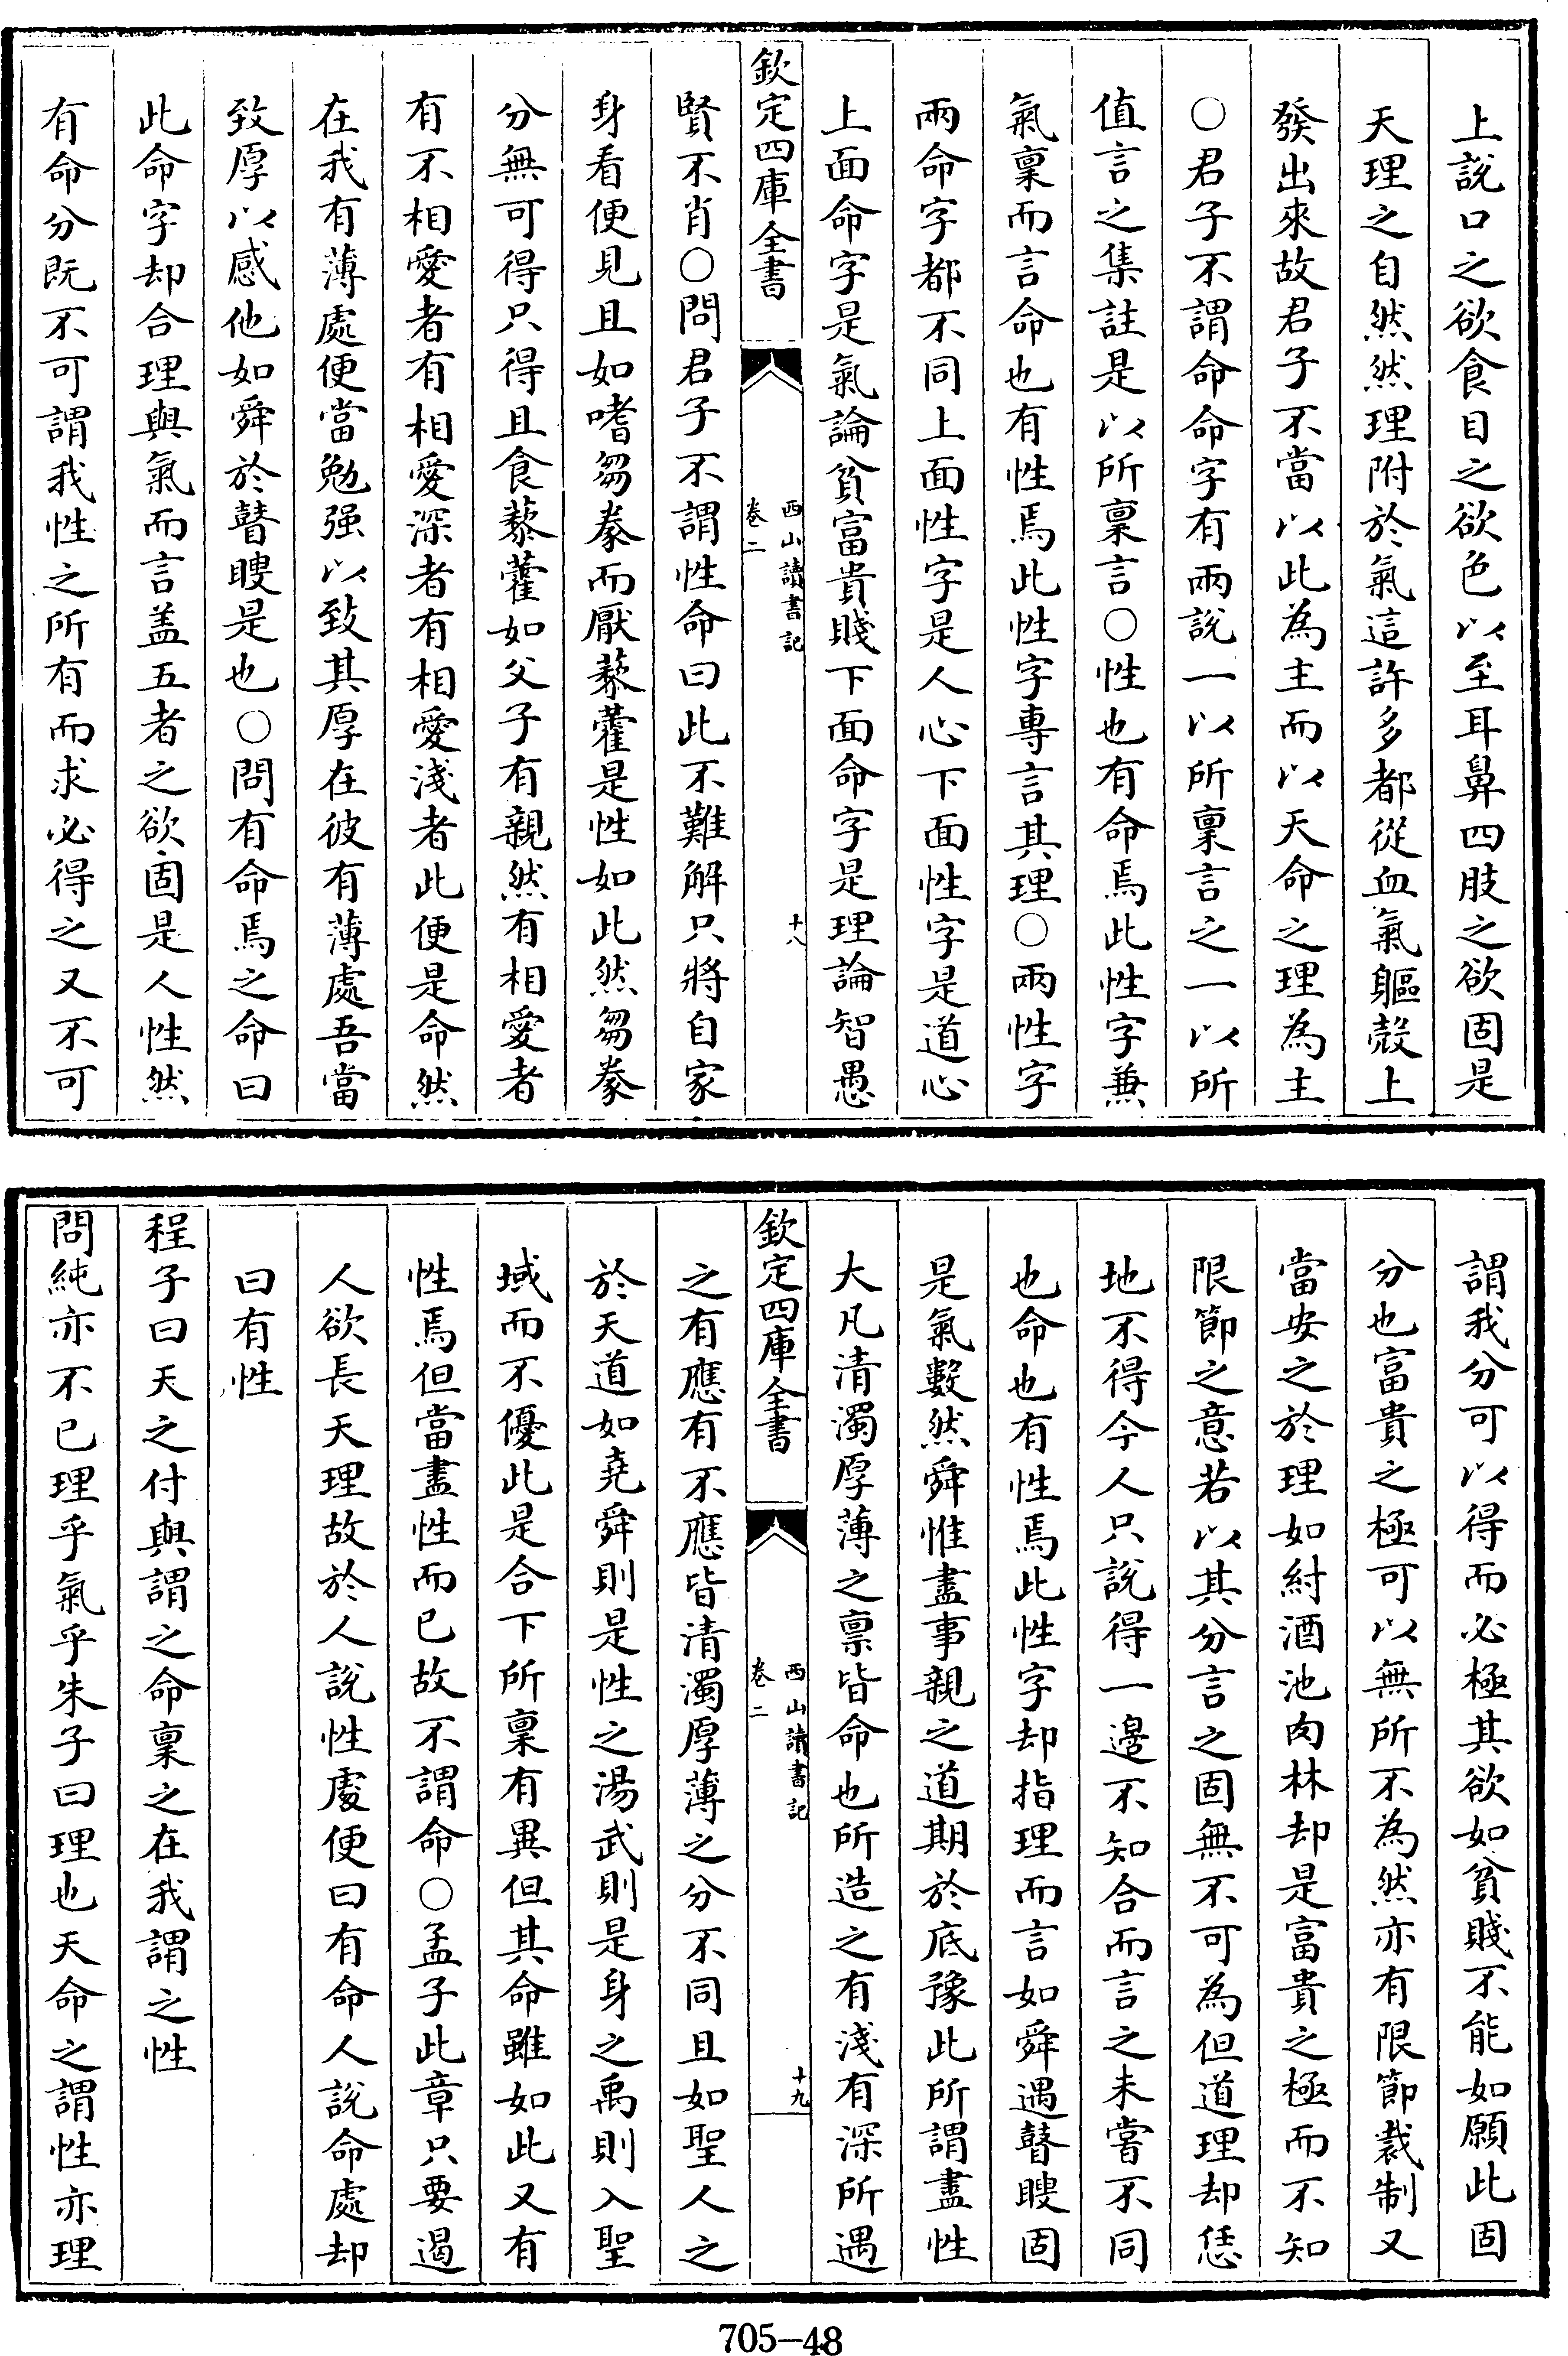 上說口之欲食目之欲色以至耳鼻四肢之欲固是
天理之自然然理附於氣這許多都從血氣軀殼上
發出來故君子不當以此為主而以天命之理為主
○君子不謂命命字有兩說一以所稟言之一以所
值言之集註是以所稟言○性也有命焉此性字兼
氣稟而言命也有性焉此性字專言其理○兩性字
兩命字都不同上面性字是人心下面性字是道心
上面命字是氣論貧富貴賤下面命字是理論智愚
欽定四庫全書
西山讀書記
卷二
十八
賢不肖○問君子不謂性命曰此不難解只將自家
身看便見且如嗜芻豢而厭藜藿是性如此然芻豢
分無可得只得且食藜藿如父子有親然有相愛者
有不相愛者有相愛深者有相愛淺者此便是命然
在我有薄處便當勉强以致其厚在彼有薄處吾當
致厚以感他如舜於瞽瞍是也○問有命焉之命曰
此命字却合理與氣而言盖五者之欲固是人性然
有命分既不可謂我性之所有而求必得之又不可
謂我分可以得而必極其欲如貧賤不能如願此固
分也富貴之極可以無所不為然亦有限節裁制又
當安之於理如紂酒池肉林却是富貴之極而不知
限節之意若以其分言之固無不可為但道理却恁
地不得今人只說得一邉不知合而言之未嘗不同
也命也有性焉此性字却指理而言如舜遇瞽瞍固
是氣數然舜惟盡事親之道期於底豫此所謂盡性
大凡清濁厚薄之稟皆命也所造之有淺有深所遇
欽定四庫全書
西山讀書記
卷二
十九
之有應有不應皆清濁厚薄之分不同且如聖人之
於天道如堯舜則是性之湯武則是身之禹則入聖
域而不優此是合下所稟有異但其命雖如此又有
性焉但當盡性而已故不謂命○孟子此章只要遏
人欲長天理故於人說性處便曰有命人說命處却
曰有性
程子曰天之付與謂之命稟之在我謂之性
問純亦不已理乎氣乎朱子曰理也天命之謂性亦理
705-48